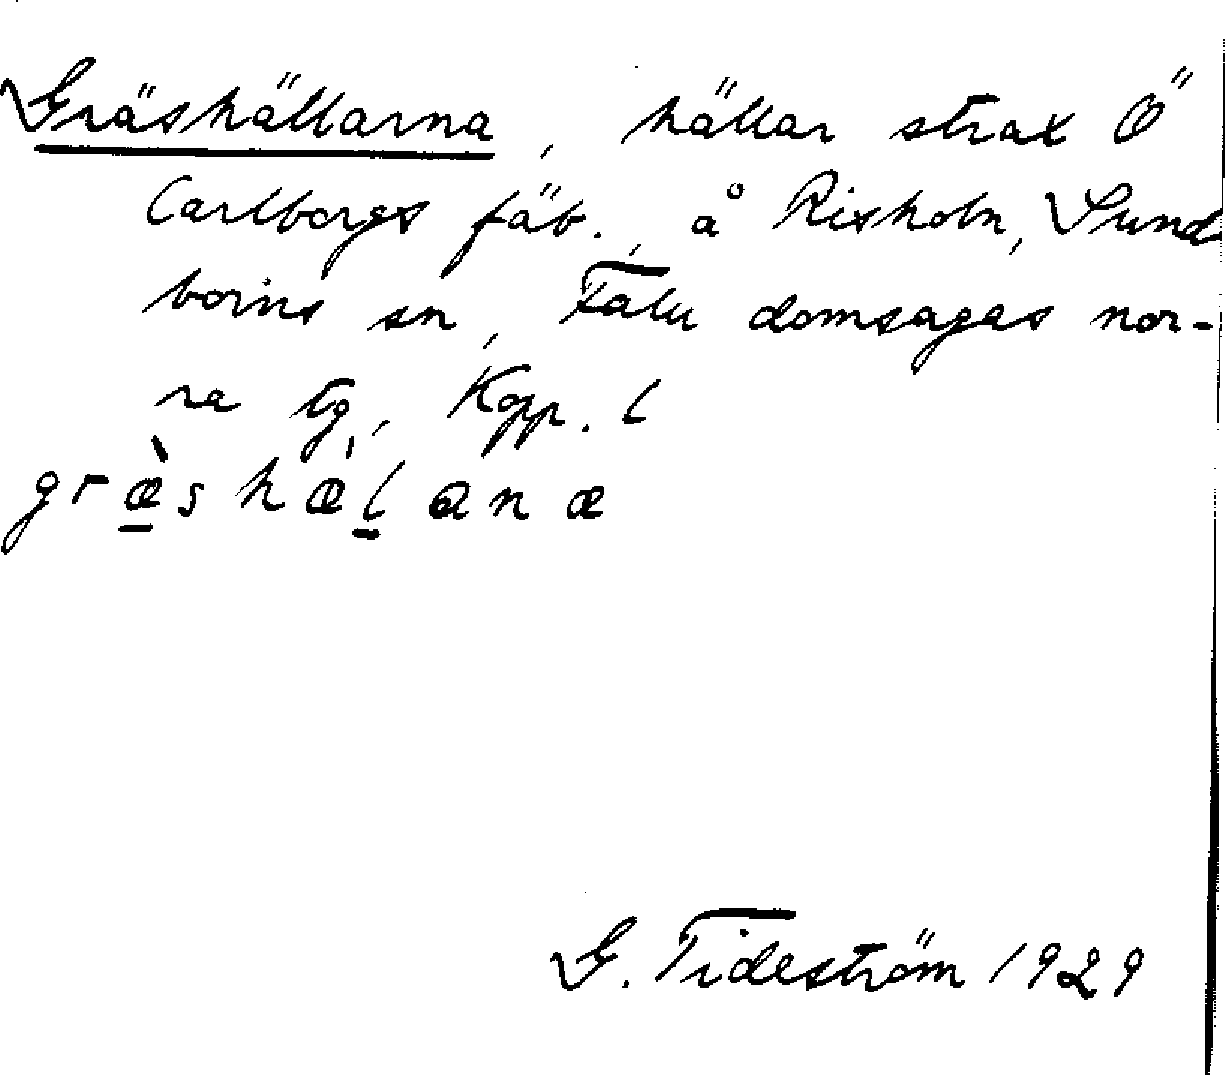 Gräshällarna, hällar strax Ö
Carlborgs fäb., å Risholn, Sund-
borns sn, Falu domsagas nor-
ra tg, Kopp. l
græ̀shæ̀lana
G. Tideström 1929